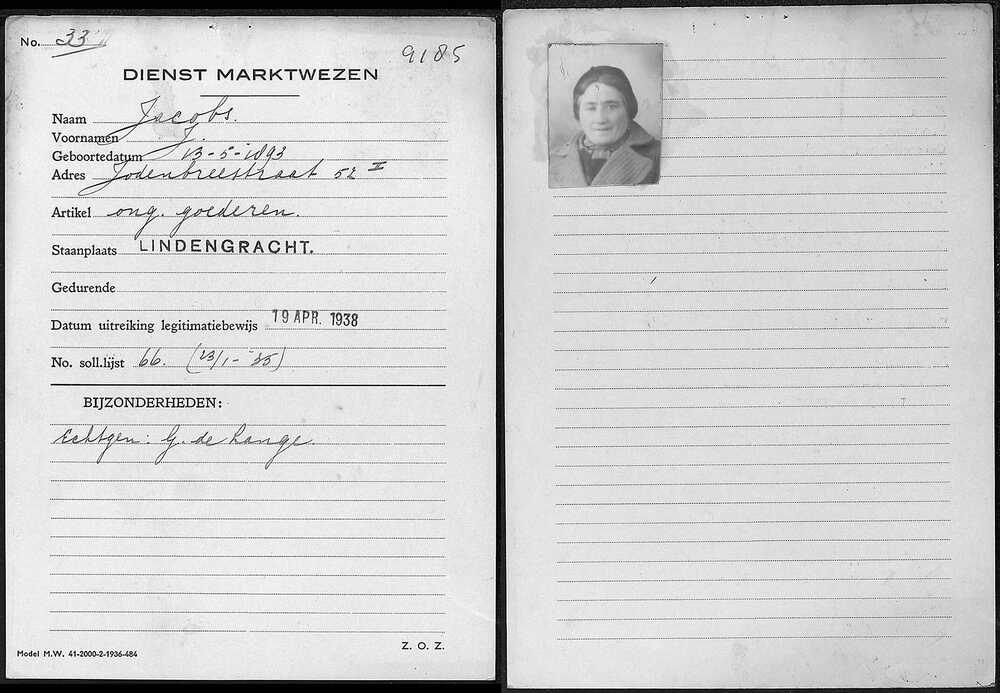 No. 33
9185
DIENST MARKTWEZEN
Naam Jacobs.
Voornamen J.
Geboortedatum 13-5-1893
Adres Jodenbreestraat 52 II
Artikel ong. goederen.
Staanplaats LINDENGRACHT.
Gedurende
Datum uitreiking legitimatiebewijs 19 APR. 1938
No. soll.lijst 66. (23/1-'35)
BIJZONDERHEDEN:
Echtgen: G. de Lange.
Model M.W. 41-2000-2-1936-484
Z. O. Z.